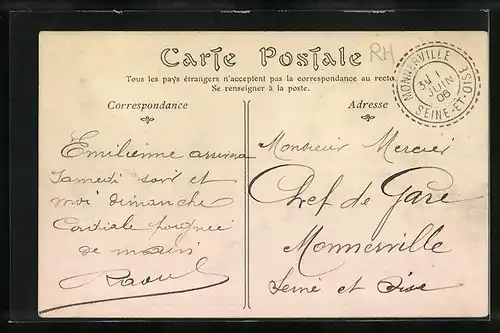 Carte Postale
RH
Tous les pays étrangers n'acceptent pas la correspondance au recto.
Se renseigner à la poste.
Correspondance
Adresse
MONNERVILLE
JUIN
06
SEINE-ET-OISE
Emilienne arrivera
Samedi soir et
moi dimanche
Cordiale poignée
de main
Raoul
Monsieur Mercier
Chef de Gare
Monnerville
Seine et Oise